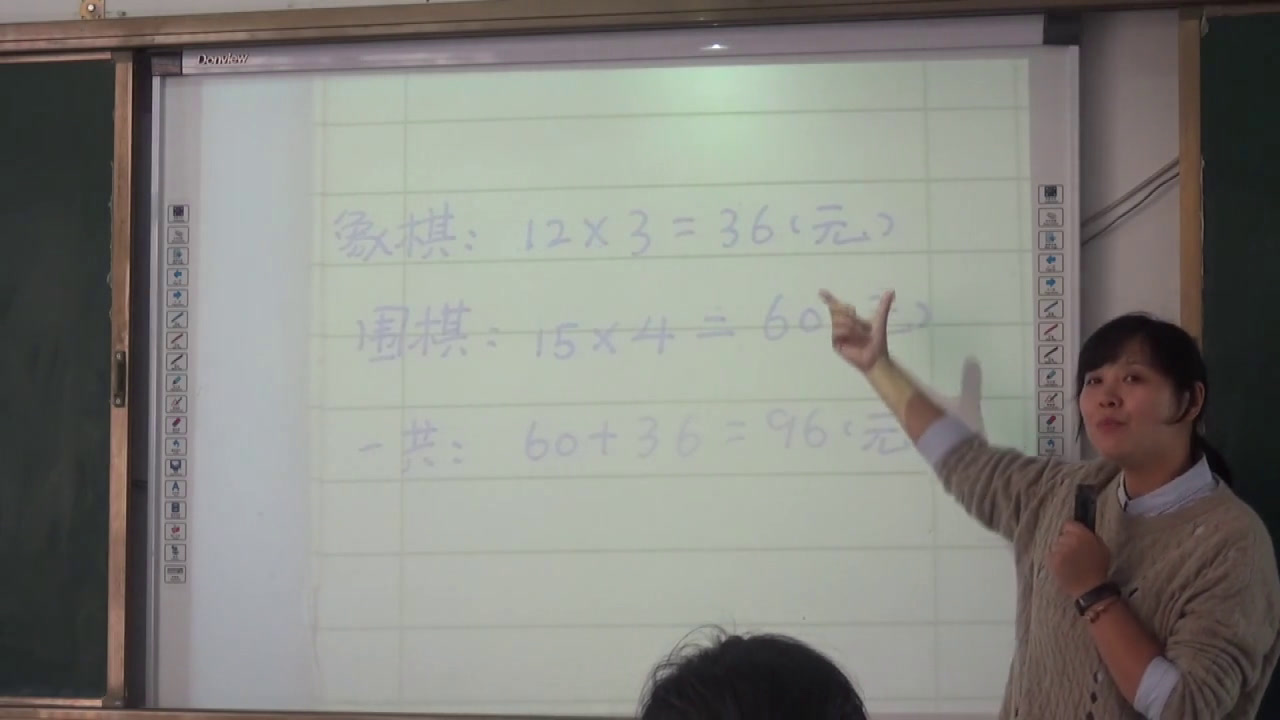 Donview
象棋：12×3=36(元)
围棋：15×4=60(元)
一共：60+36=96(元